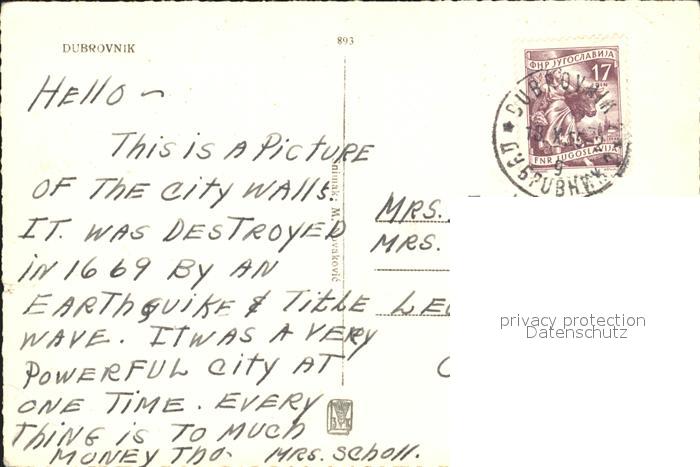 DUBROVNIK
893
HELLO ~
THIS IS A PICTURE
OF THE CITY WALLS.
IT. WAS DESTROYED
IN 1669 BY AN
EARTHQUIKE & TITLE
WAVE. IT WAS A VERY
POWERFUL CITY AT
ONE TIME. EVERY
THING IS TO MUCH
MONEY THO. MRS. SCHOLL.
ФНР ЈУГОСЛАВИЈА
17
DIN
FNR JUGOSLAVIJA
DUBROVNIK
ДУБРОВНИК
MRS.
MRS.
privacy protection
Datenschutz